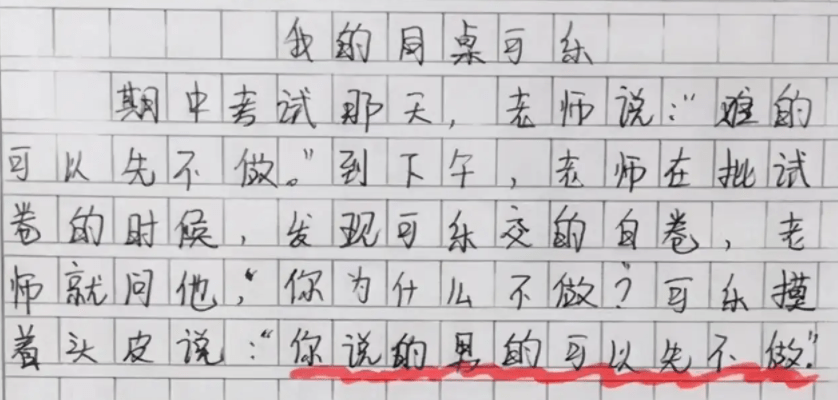 我的同桌可乐
期中考试那天，老师说：“难的
可以先不做。”到下午，老师在批试
卷的时候，发现可乐交的白卷，老
师就问他，“你为什么不做？可乐摸
着头皮说：“你说的男的可以先不做”